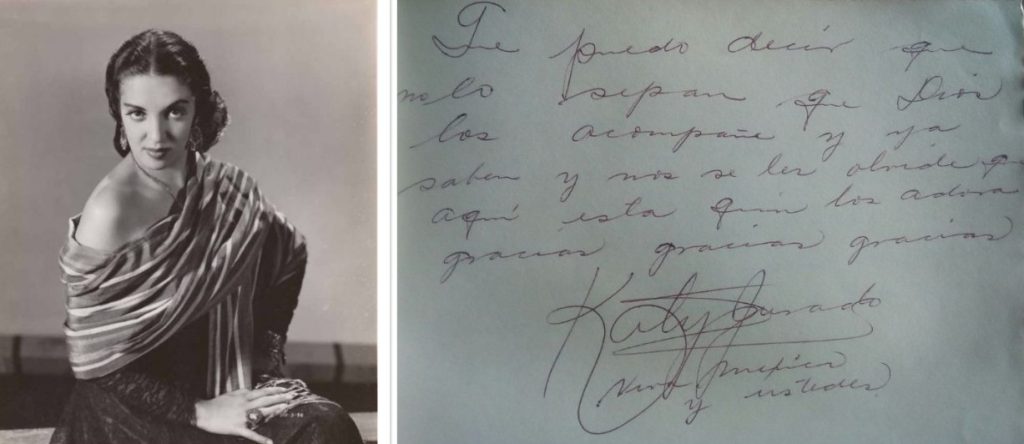 Que puedo decir que
no lo sepan que Dios
los acompañe y ya
saben y nos se les olvide que
aquí esta quin los adora
gracias gracias gracias
Katy Jurado
Viva mexico
y ustedes